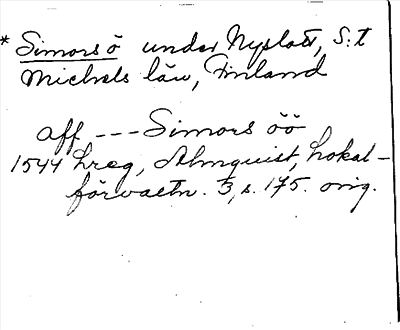 * Simors ö under Nyslott, S:t
Michels län, Finland
aff --- Simors öö
1544 hreg, Almquist, Lokal-
förvaltn. 3, s. 175. orig.